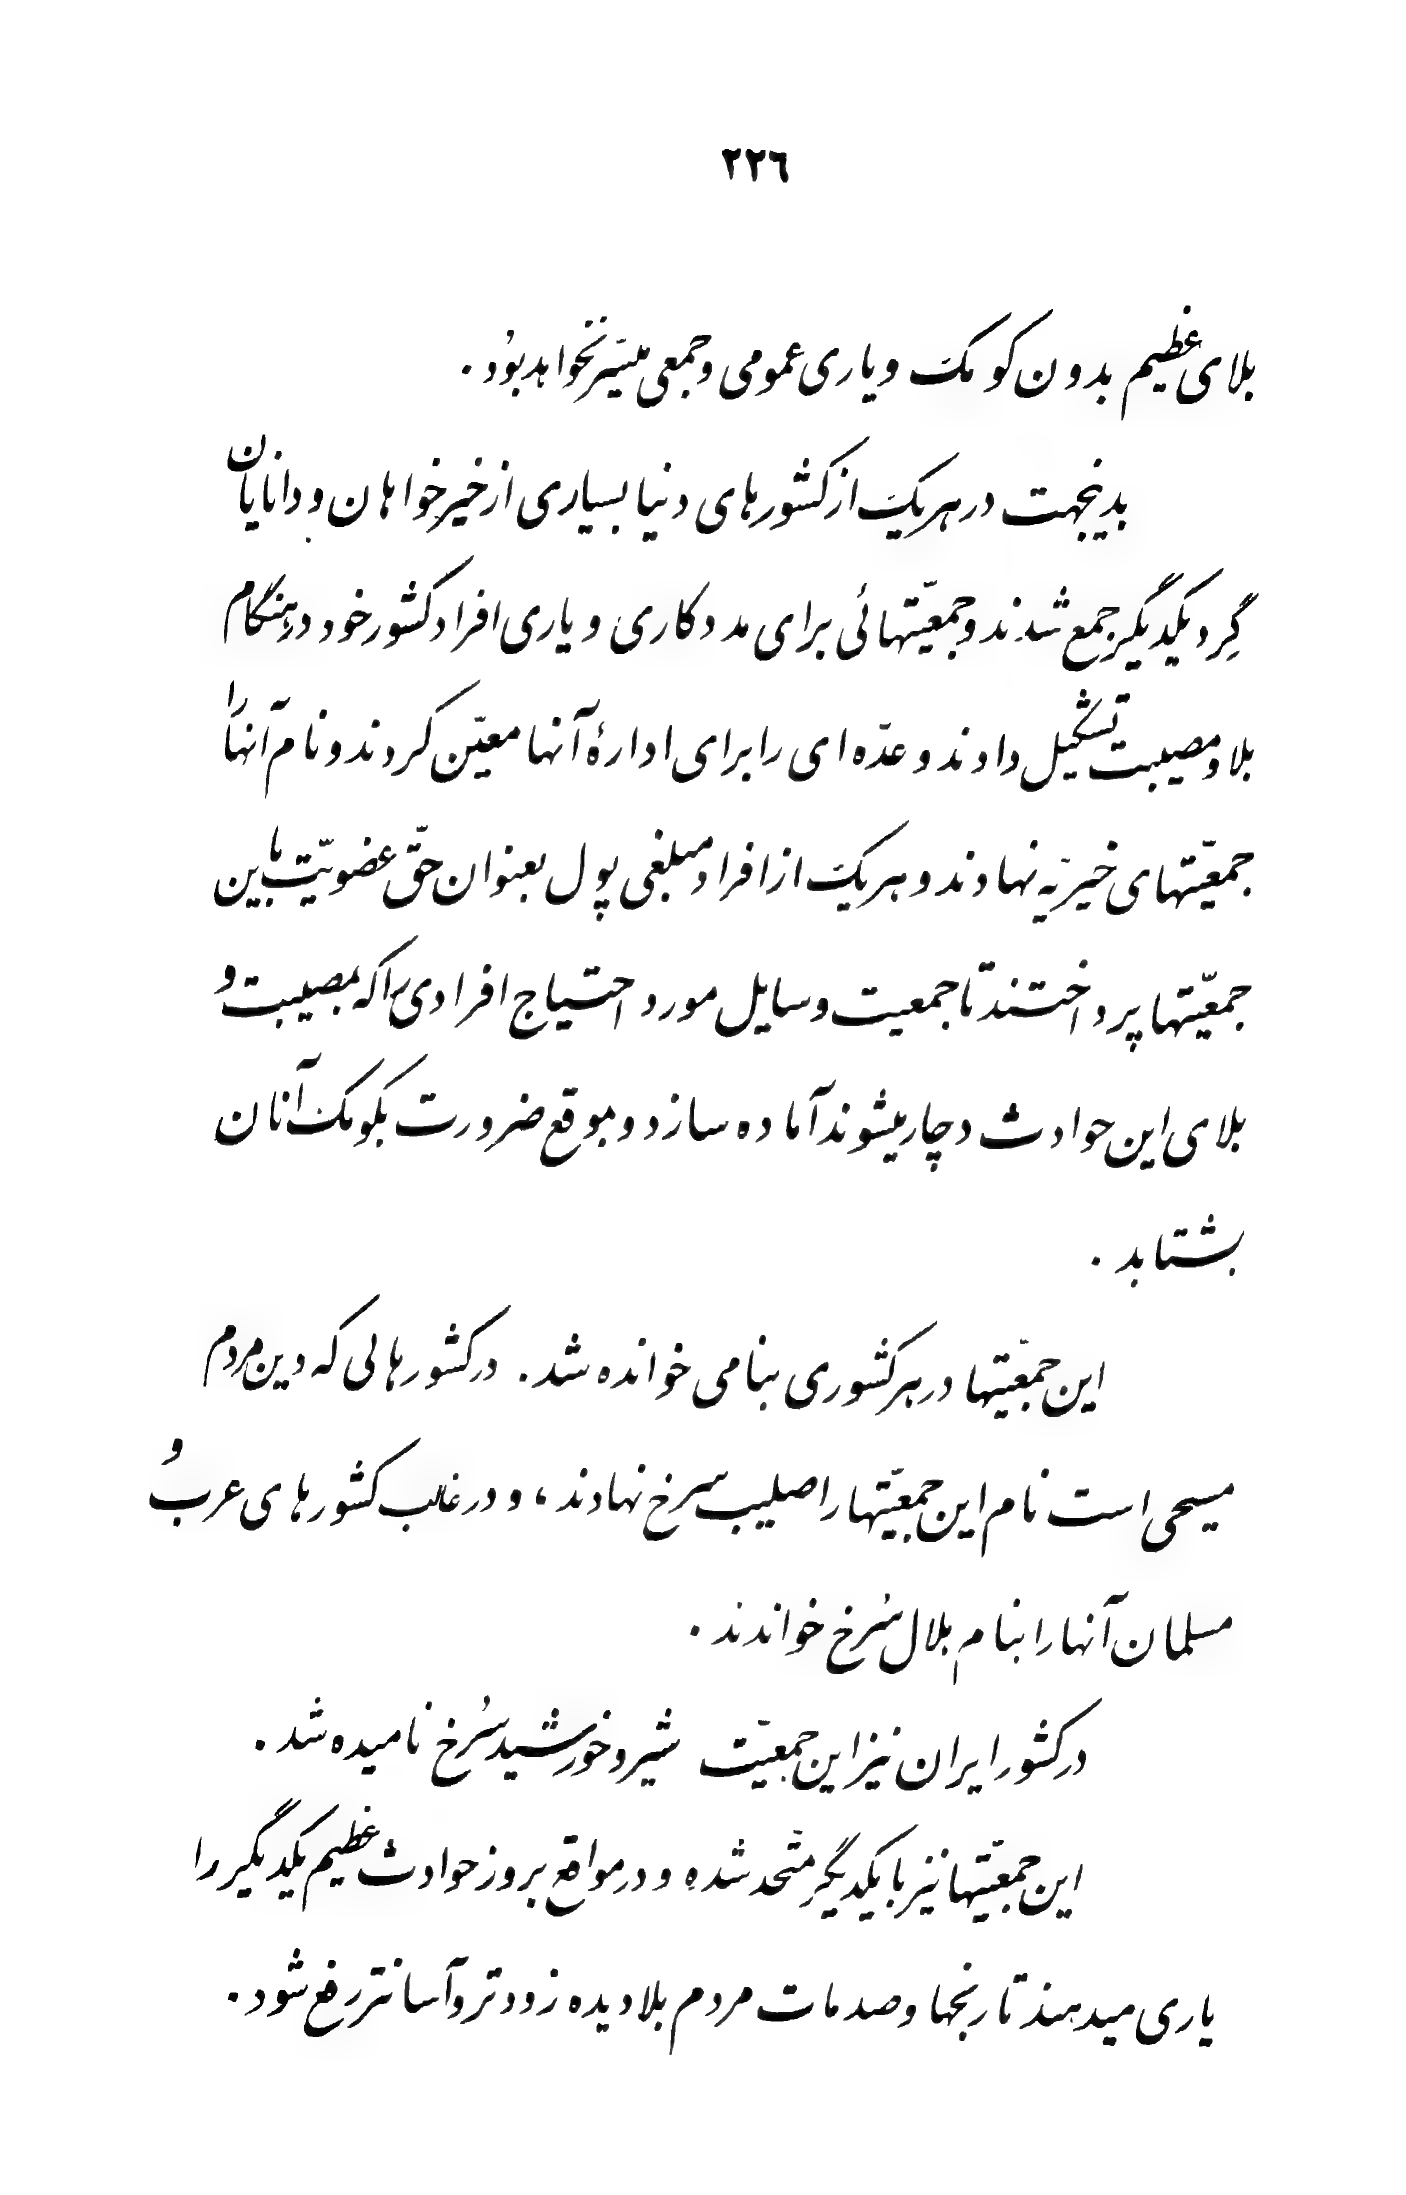 ٢٢٦
بلای عظیم بدون کومک و یاری عمومی و جمعی میسّر نخواهد بُود .
بدینجهت در هریک از کشورهای دنیا بسیاری از خیرخواهان و دانایان
گِرد یکدیگر جمع شدند و جمعیّتهائی برای مددکاری و یاری افراد کشور خود در هنگام
بلا و مصیبت تشکیل دادند و عدّه‌ای را برای ادارهٔ آنها معیّن کردند و نام آنها را
جمعیّتهای خیریّه نهادند و هریک از افراد مبلغی پول بعنوان حقّ عضویّت باین
جمعیّتها پرداختند تا جمعیت وسایل مورد احتیاج افرادی را که بمصیبت و
بلای این حوادث دچار میشوند آماده سازد و بموقع ضرورت بکومک آنان
بشتابد .
این جمعّیتها در هر کشوری بنامی خوانده شد . در کشورهائی که دین مردم
مسیحی است نام این جمعیّتها را صلیب سرخ نهادند ، و در غالب کشورهای عرب و
مسلمان آنها را بنام هلال سُرخ خواندند .
در کشور ایران نیز این جمعیّت شیر و خورشید سُرخ نامیده شد .
این جمعیّتها نیز با یکدیگر متّحد شده و در مواقع بروز حوادث عظیم یکدیگر را
یاری میدهند تا رنجها و صدمات مردم بلادیده زودتر و آسانتر رفع شود .